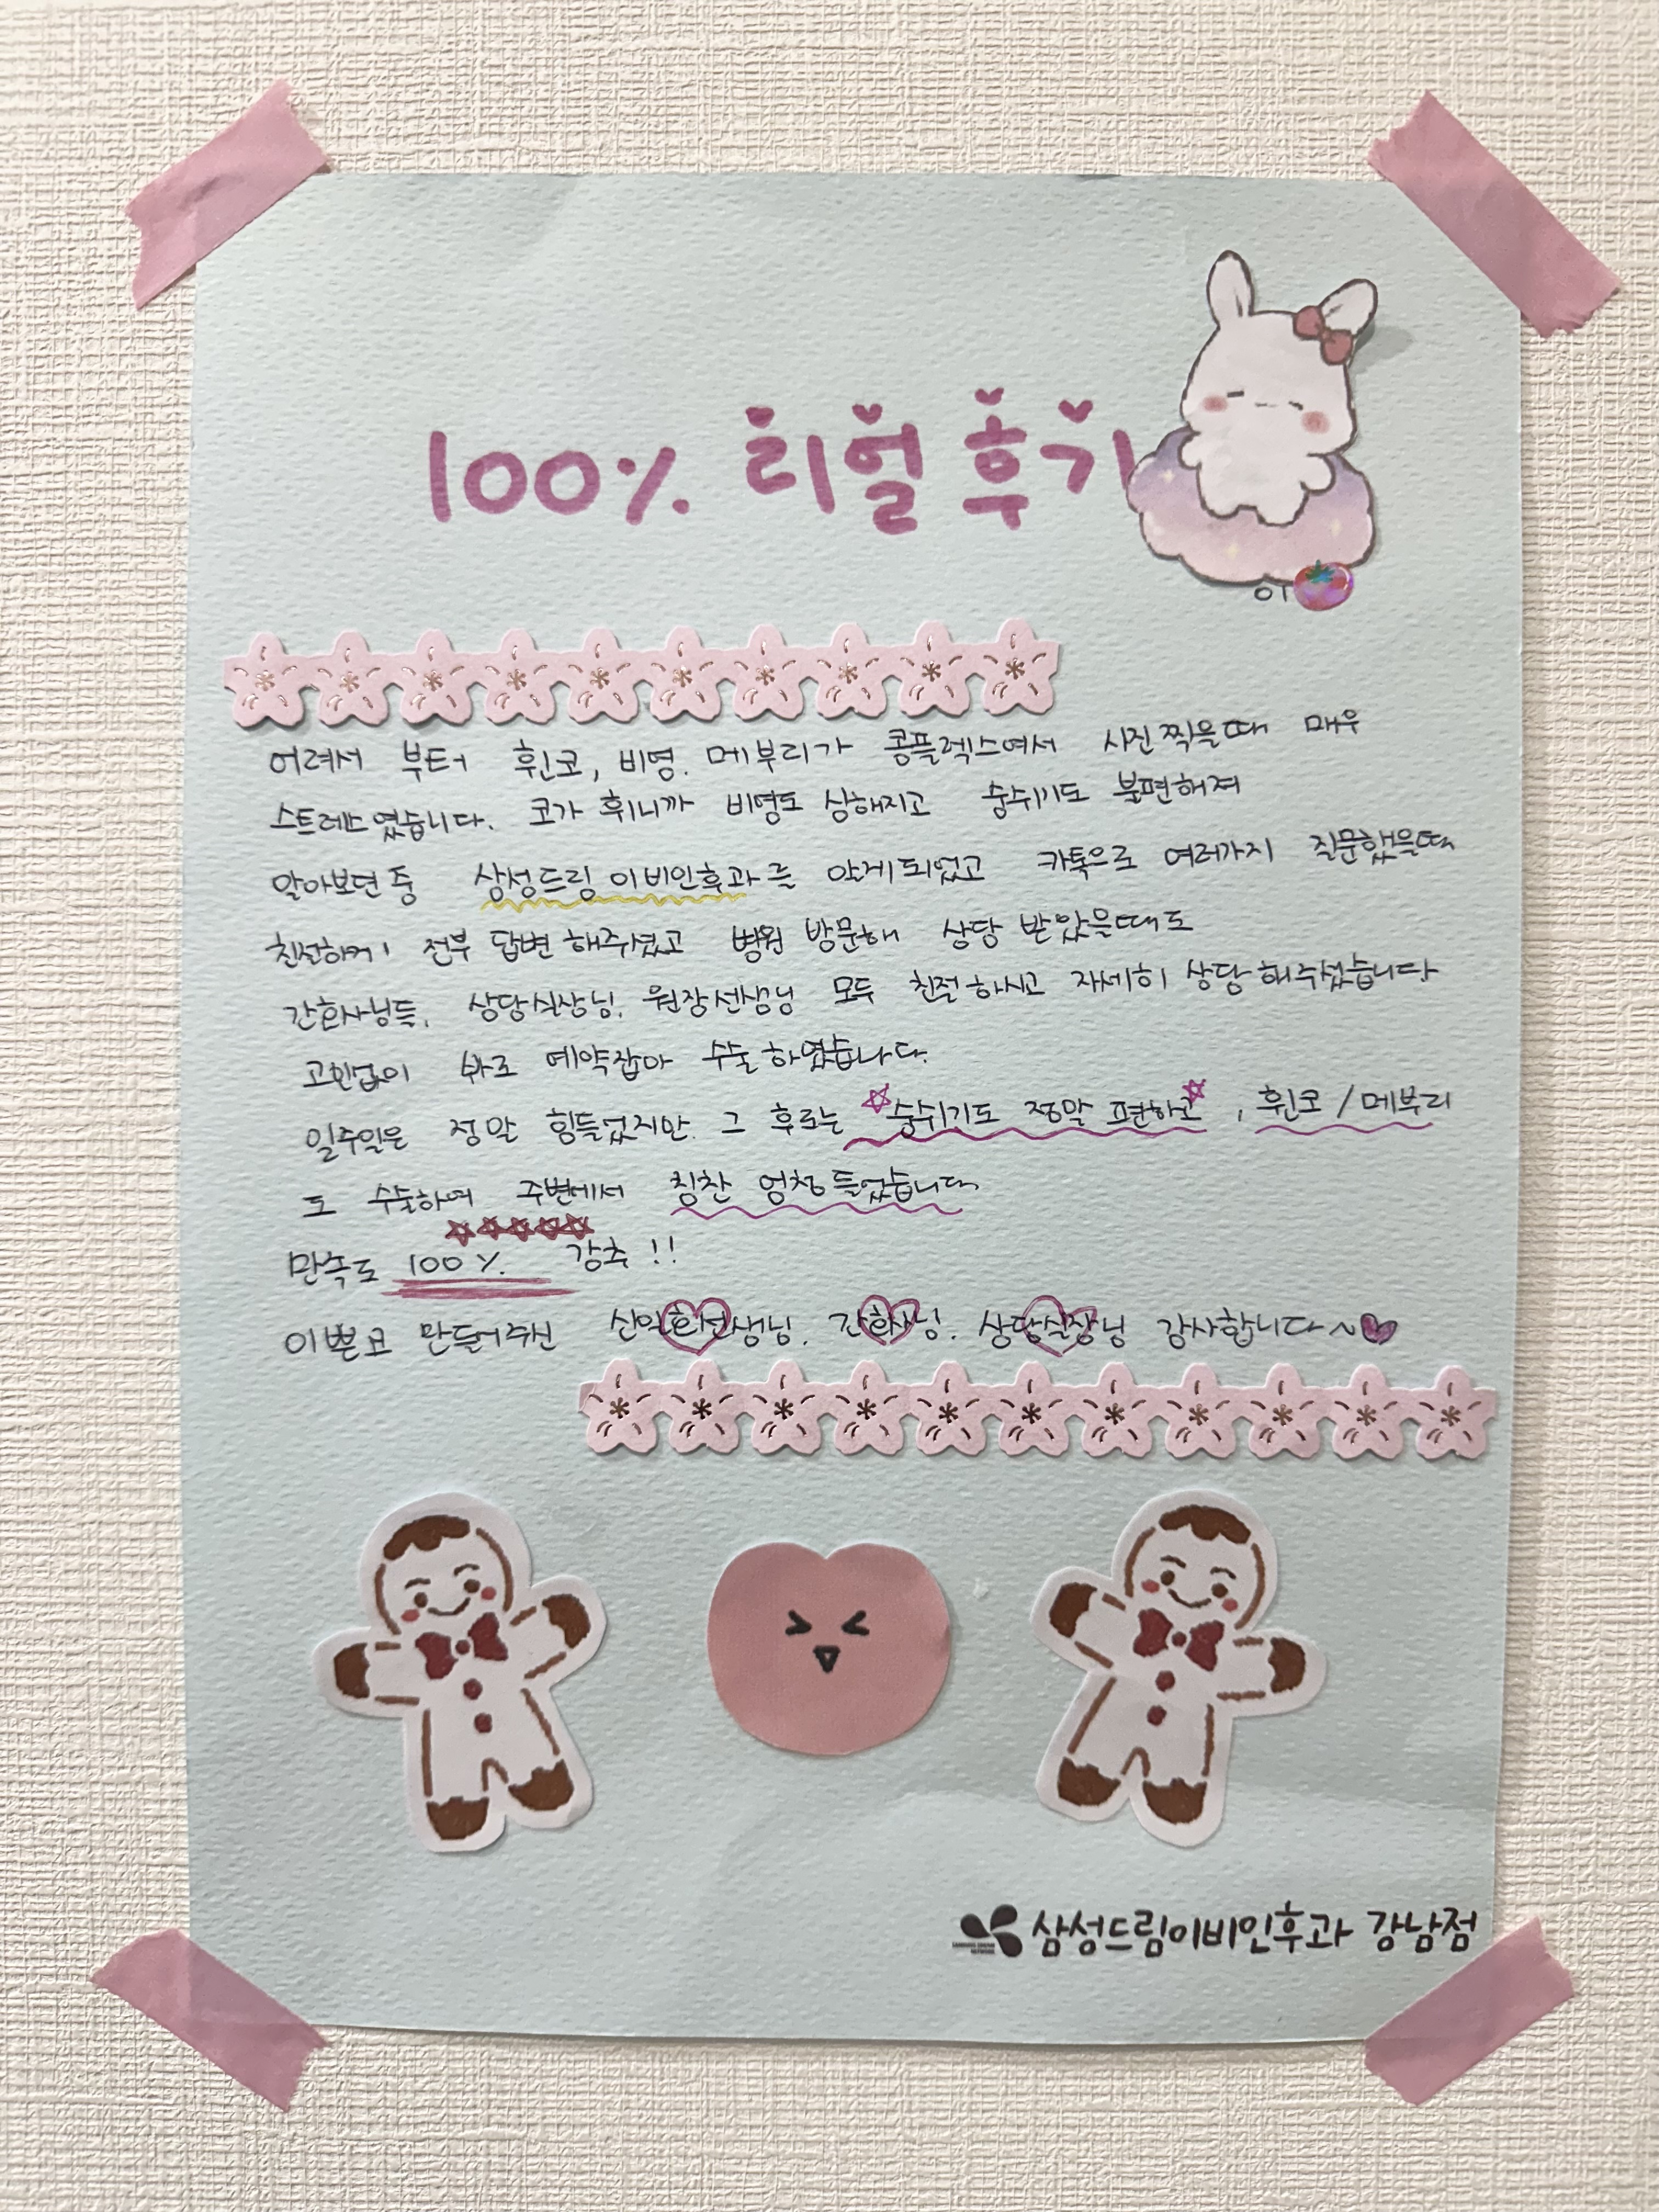 100% 리얼후기
이
어려서 부터 휜코, 비염. 메부리가 콤플렉스여서 사진찍을때 매우
스트레스였습니다. 코가 휘니까 비염도 심해지고 숨쉬기도 불편해져
알아보던 중 삼성드림 이비인후과를 알게되었고 카톡으로 여러가지 질문했을때
친절하게 전부 답변 해주셨고 병원 방문해 상담 받았을때도
간호사님들, 상담실장님, 원장선생님 모두 친절하시고 자세히 상담해주셨습니다
고민없이 바로 예약잡아 수술하였습니다.
일주일은 정말 힘들었지만 그 후로는 숨쉬기도 정말 편하고, 휜코/메부리
도 수술하여 주변에서 칭찬 엄청 들었습니다
만족도 100% 강추!!
이쁜코 만들어주신 선생님, 간호사님, 상담실장님 감사합니다~
삼성드림이비인후과 강남점